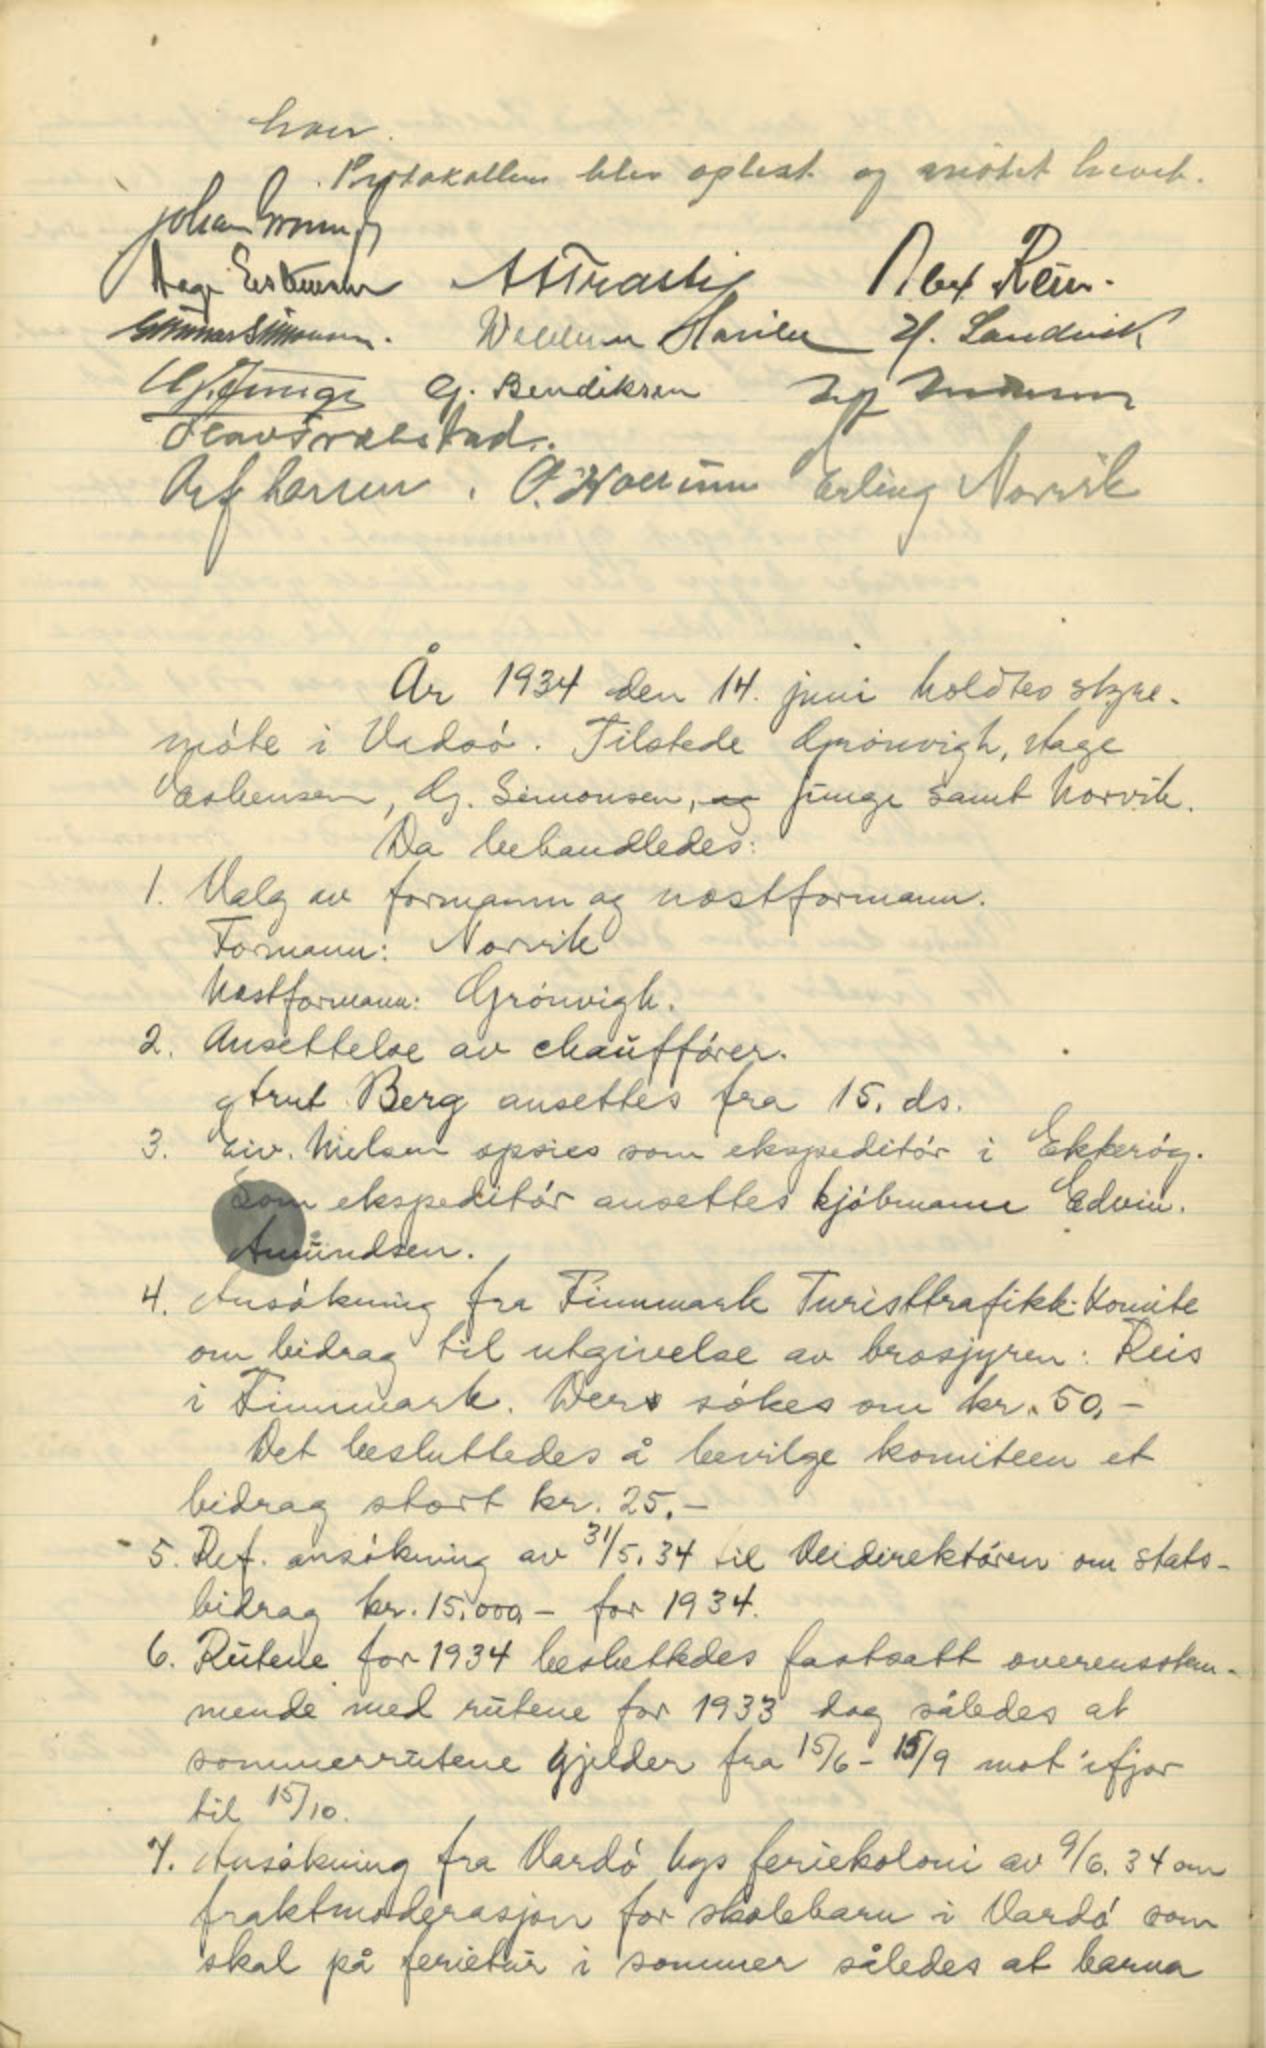 Protokollen blev oplest og møtet hevet.
Johan Grønvigh
Hage Eskensen Alex Rein.
Gunnar Simonsen. H. Sandvik
Junge G. Bendiksen
Leif Larsen. Erling Norvik
År 1934 den 14. juni holdtes styre-
møte i Vadsø. Tilstede Grønvigh, Hage
Eskensen, G. Simonsen, og Junge samt Norvik.
Da behandledes:
1. Valg av formann og næstformann.
Formann: Norvik
Næstformann: Grønvigh.
2. Ansettelse av chauffører.
Arnt Berg ansettes fra 15. ds.
3. Eiv. Nielsen opsies som ekspeditør i Ekkerøy.
Som ekspeditør ansettes kjøbmann Edvin.
Amundsen.
4. Ansøkning fra Finnmark Turisttrafikk-Komite
om bidrag til utgivelse av brosjyren: Reis
i Finnmark. Der søkes om kr. 50,-
Det besluttedes å bevilge komiteen et
bidrag stort kr. 25.-
5. Ref. ansøkning av 31/5.34 til Veidirektøren om stats-
bidrag kr. 15.000,- for 1934.
6. Rutene for 1934 besluttedes fastsatt overensstem-
mende med rutene for 1933 dog således at
sommerrutene gjelder fra 15/6 - 15/9 mot ifjor
til 15/10.
7. Ansøkning fra Vardø bys feriekoloni av 9/6.34 om
fraktmoderasjon for skolebarn i Vardø som
skal på ferietur i sommer således at barna